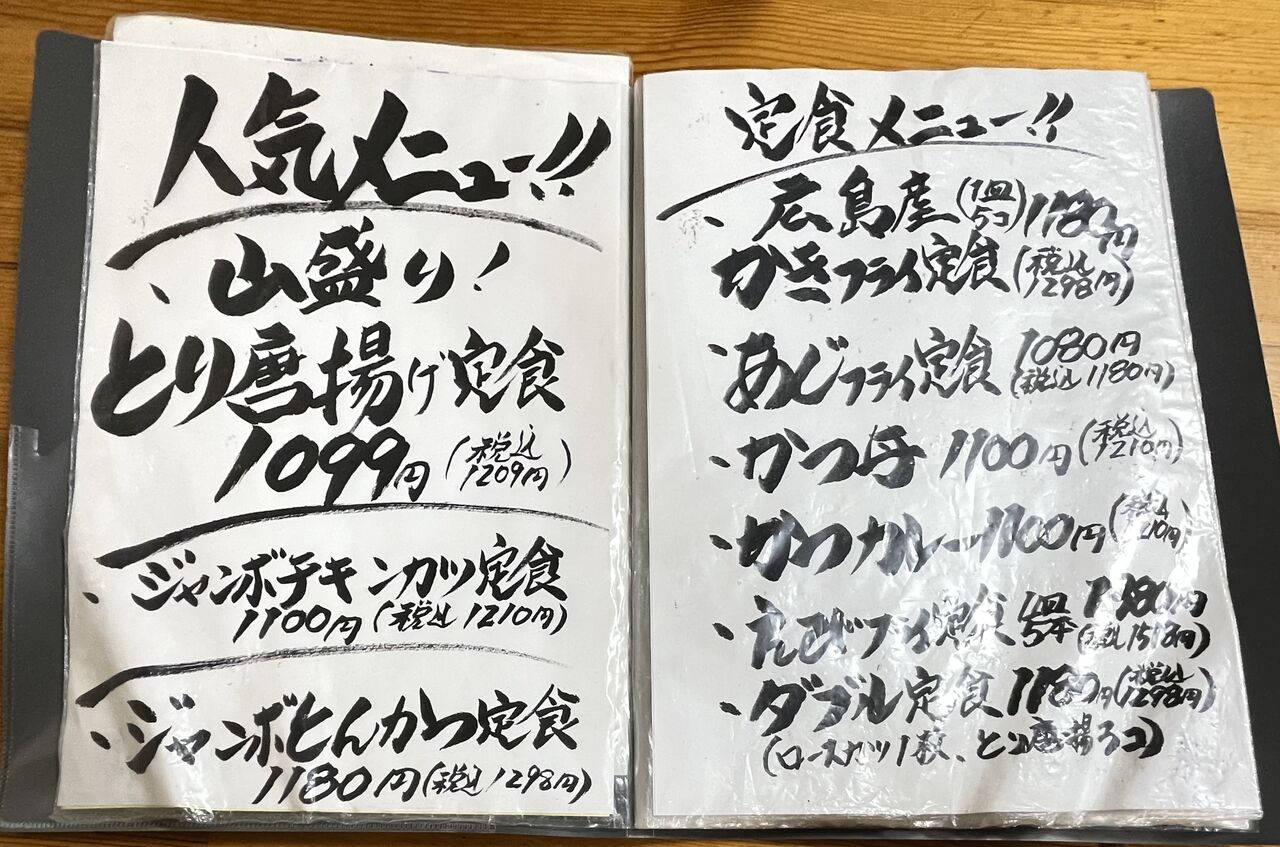 人気メニュー!!
、山盛り!
とり唐揚げ定食
1099円(税込1209円)
、ジャンボチキンカツ定食
1100円(税込1210円)
、ジャンボとんかつ定食
1180円(税込1298円)
定食メニュー!!
、広島産(1皿5コ)1180円
かきフライ定食(税込1298円)
、あじフライ定食 1080円
(税込1180円)
、かつ丼 1100円(税込1210円)
、かつカレー1100円
、えびフライ定食 1皿5本
、ダブル定食1180円(税込1298円)
(ロースカツ1枚、とり唐揚3コ)